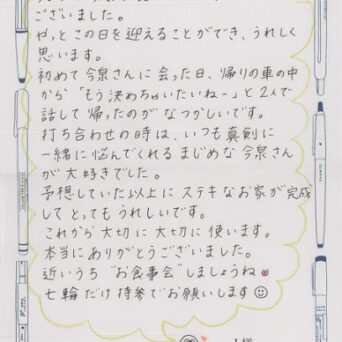 ございました。
やっとこの日を迎えることができ、うれしく
思います。
初めて今泉さんに会った日、帰りの車の中
から「もう決めちゃいたいねー」と2人で
話して帰ったのがなつかしいです。
打ち合わせの時は、いつも真剣に
一緒に悩んでくれるまじめな今泉さん
が大好きでした。
予想していた以上にステキなお家が完成
してとってもうれしいです。
これから大切に大切に使います。
本当にありがとうございました。
近いうち"お食事会"しましょうね
七輪だけ持参でお願いします
様